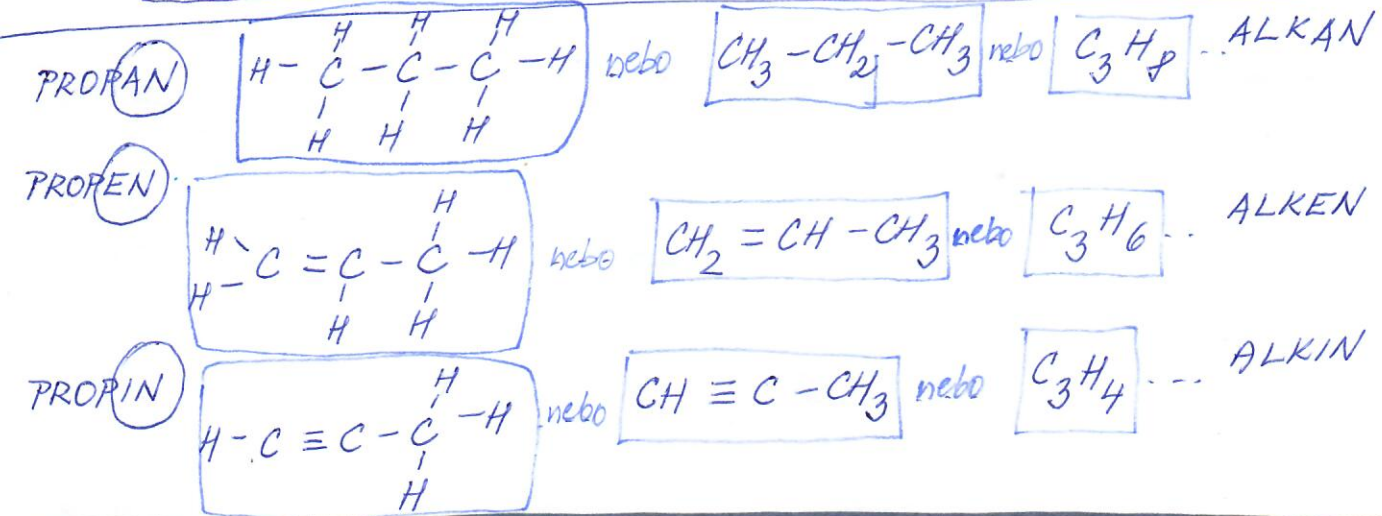 PROPAN H H H
H - C - C - C - H nebo CH3 - CH2 - CH3 nebo C3H8 .. ALKAN
H H H
PROPEN H
H C = C - C - H nebo CH2 = CH - CH3 nebo C3H6 .. ALKEN
H - H H
PROPIN H
H - C ≡ C - C - H nebo CH ≡ C - CH3 nebo C3H4 .... ALKIN
H